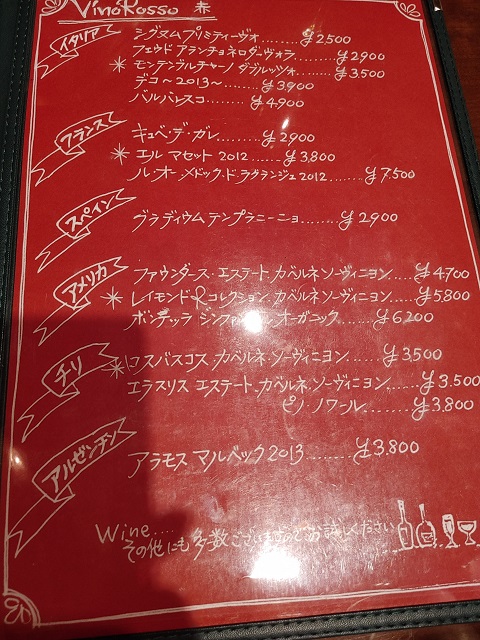 Vino Rosso 赤
イタリア
シグヌム プリミティーヴォ........¥2500
フェウド アランチョ ネロダーヴォラ........¥2900
* モンテプルチャーノ ダブルッツォ........¥3,500
デコ〜2013〜........¥3,900
バルバレスコ........¥4,900
フランス
キュベ・デ・ガレ........¥2900
* エル マセット 2012......¥3,800
ル・オー メドック・ド・ラグランジュ2012........¥7,500
スペイン
グラディウム テンプラニーニョ........¥2900
アメリカ
ファウンダース・エステート カベルネ・ソーヴィニヨン....¥4700
* レイモンド Rコレクション カベルネ・ソーヴィニヨン....¥5800
ボンテッラ ジンファンデル オーガニック......¥6200
チリ
* コスバスコス カベルネ・ソーヴィニヨン....¥3500
エラスリス エステート カベルネ・ソーヴィニヨン....¥3,500
ピノ・ノワール........¥3,800
アルゼンチン
アラモス マルベック2013........¥3,800
Wine....
その他にも多数ございますのでお試しください